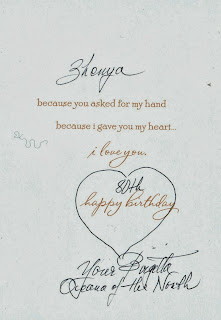 Zhenya
because you asked for my hand
because i gave you my heart...
i love you.
80th
happy birthday
Your Birgitta
of the North